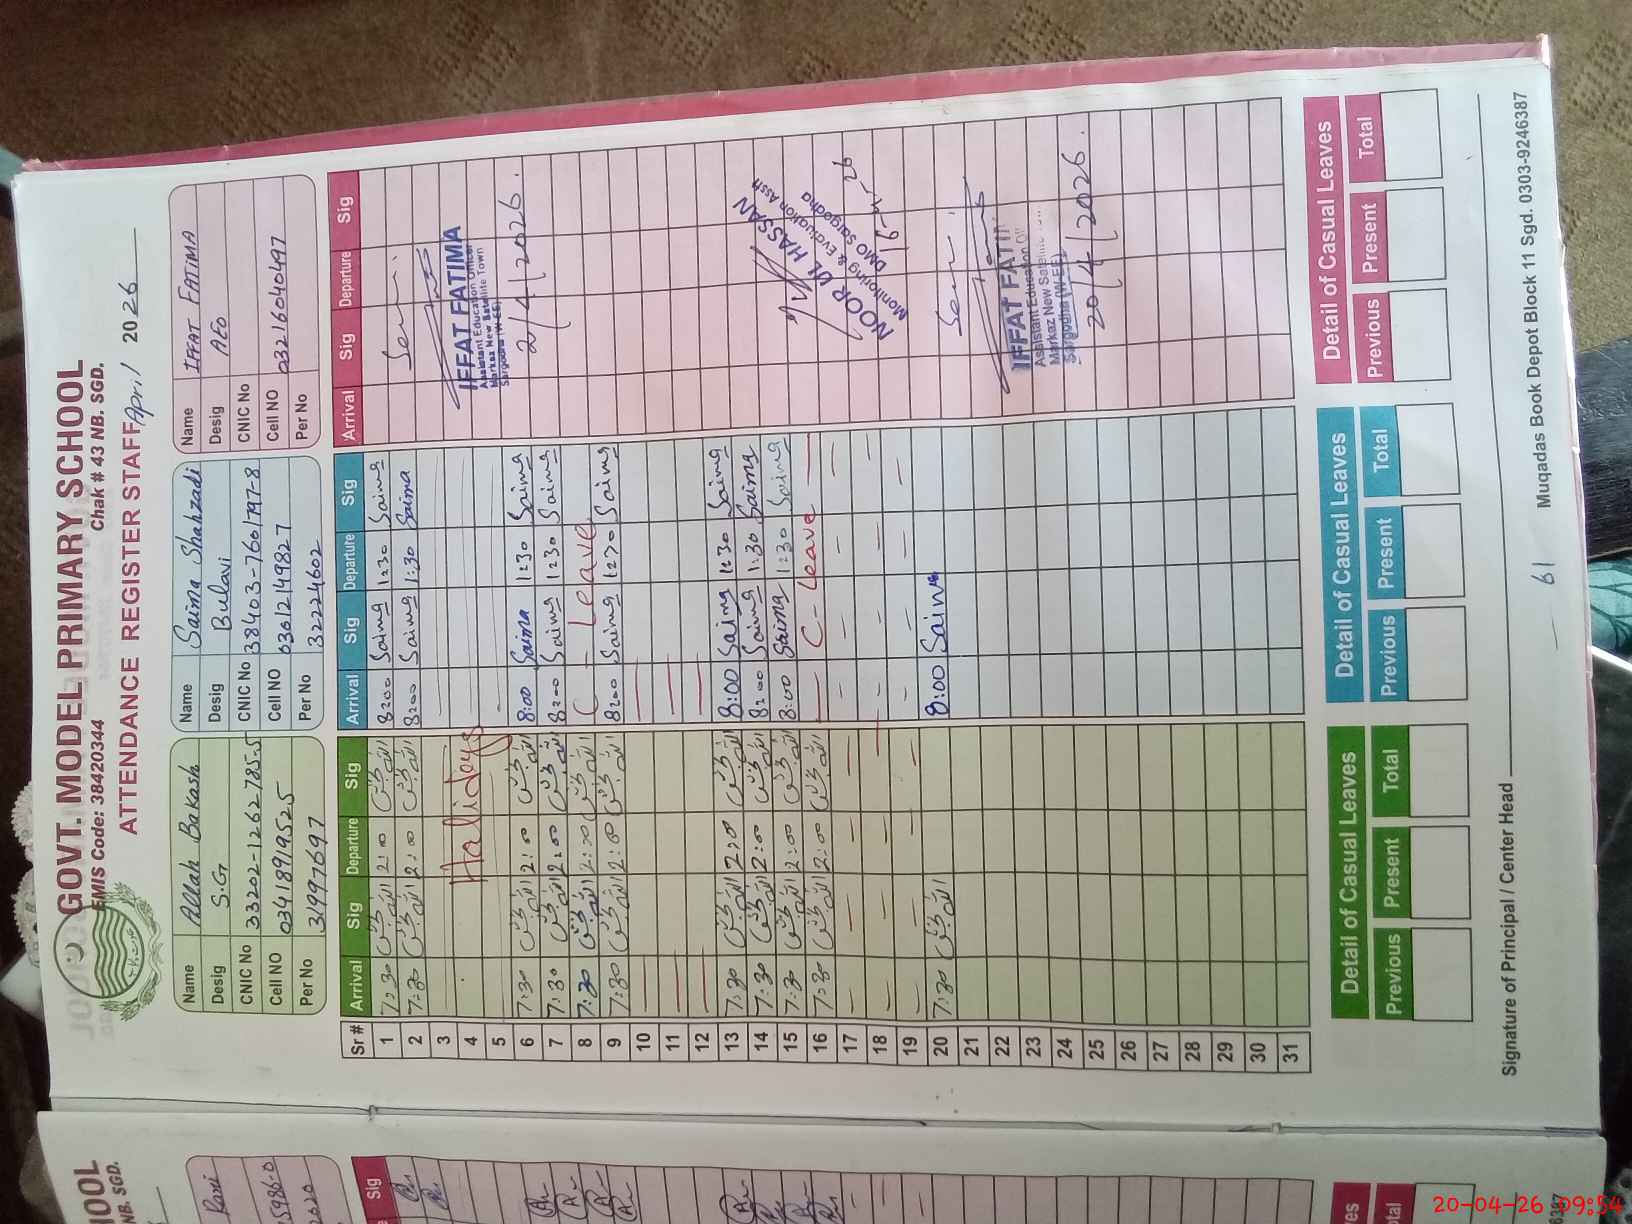 GOVT. MODEL PRIMARY SCHOOL
EMIS Code: 38420344 Chak # 43 NB. SGD.
ATTENDANCE REGISTER STAFF April 2026
Name Allah Bakash
Desig S.G
CNIC No 33202-1262785-5
Cell NO 03418919525
Per No 31997697
Name Saima Shahzadi
Desig Bulavi
CNIC No 38403-7601797-8
Cell NO 03012149827
Per No 32224602
Name IFFAT FATIMA
Desig AEO
CNIC No
Cell NO 03216040497
Per No
Sr # Arrival Sig Departure Sig Arrival Sig Departure Sig Arrival Sig Departure Sig
1 7:30 اللہ بخش 2:00 اللہ بخش 8:00 Saima 1:30 Saima
2 7:30 اللہ بخش 2:00 اللہ بخش 8:00 Saima 1:30 Saima
3
4 Halidays
5
6 7:30 اللہ بخش 2:00 اللہ بخش 8:00 Saima 1:30 Saima
7 7:30 اللہ بخش 2:00 اللہ بخش 8:00 Saima 1:30 Saima
8 7:30 اللہ بخش 2:00 اللہ بخش C - Leave
9 7:30 اللہ بخش 2:00 اللہ بخش 8:00 Saima 1:30 Saima
10
11
12
13 7:30 اللہ بخش 2:00 اللہ بخش 8:00 Saima 1:30 Saima
14 7:30 اللہ بخش 2:00 اللہ بخش 8:00 Saima 1:30 Saima
15 7:30 اللہ بخش 2:00 اللہ بخش 8:00 Saima 1:30 Saima
16 7:30 اللہ بخش 2:00 اللہ بخش C - Leave
17
18
19
20 7:30 اللہ بخش 8:00 Saima
21
22
23
24
25
26
27
28
29
30
31
IFFAT FATIMA
Assistant Education Officer
Markaz New Satellite Town
Sargodha (W-EE)
2/4/2026.
NOOR UL HASSAN
Monitoring & Evaluation Asstt
DMO Sargodha
16-4-26
IFFAT FATI
Assistant Education
Markaz New Satellite
Sargodha (W-EE)
20/4/2026.
Detail of Casual Leaves
Previous Present Total
Detail of Casual Leaves
Previous Present Total
Detail of Casual Leaves
Previous Present Total
Signature of Principal / Center Head
61
Muqadas Book Depot Block 11 Sgd. 0303-9246387
HOOL
NB. SGD.
Sig
20-04-26 09:54